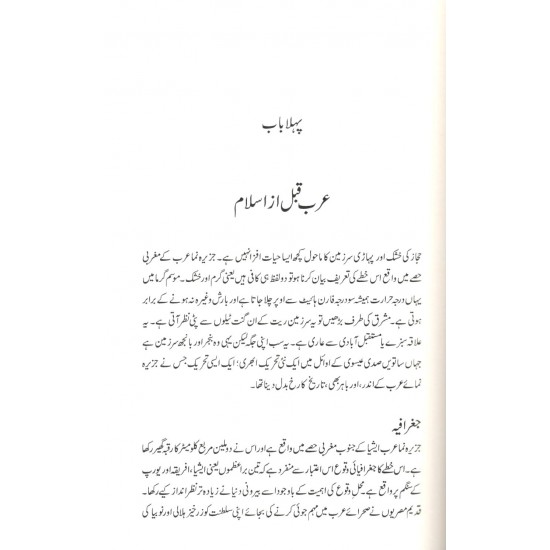 پہلا باب
عرب قبل از اسلام
حجاز کی خشک اور پہاڑی سرزمین کا ماحول کچھ ایسا حیات افزا نہیں ہے۔ جزیرہ نما عرب کے مغربی
حصے میں واقع اس خطے کی تعریف بیان کرنا ہو تو دو لفظ ہی کافی ہیں یعنی گرم اور خشک۔ موسم گرما میں
یہاں درجہ حرارت ہمیشہ سو درجہ فارن ہائیٹ سے اوپر چلا جاتا ہے اور بارش وغیرہ نہ ہونے کے برابر
ہوتی ہے۔ مشرق کی طرف بڑھیں تو یہ سرزمین ریت کے ان گنت ٹیلوں سے پٹی نظر آتی ہے۔ یہ
علاقہ سبزے یا مستقل آبادی سے عاری ہے۔ یہ سب اپنی جگہ لیکن یہی وہ بنجر اور بانجھ سرزمین ہے
جہاں ساتویں صدی عیسوی کے اوائل میں ایک نئی تحریک ابھری؛ ایک ایسی تحریک جس نے جزیرہ
نمائے عرب کے اندر، اور باہر بھی، تاریخ کا رخ بدل دینا تھا۔
جغرافیہ
جزیرہ نما عرب ایشیا کے جنوب مغربی حصے میں واقع ہے اور اس نے دو ملین مربع کلومیٹر کا رقبہ گھیر رکھا
ہے۔ اس خطے کا جغرافیائی وقوع اس اعتبار سے منفرد ہے کہ تین براعظموں یعنی ایشیا، افریقہ اور یورپ
کے سنگم پر واقع ہے۔ محل وقوع کی اہمیت کے باوجود اسے بیرونی دنیا نے زیادہ تر نظر انداز کیے رکھا۔
قدیم مصریوں نے صحرائے عرب میں مہم جوئی کرنے کی بجائے اپنی سلطنت کو زرخیز ہلالی اور نوبیا کی